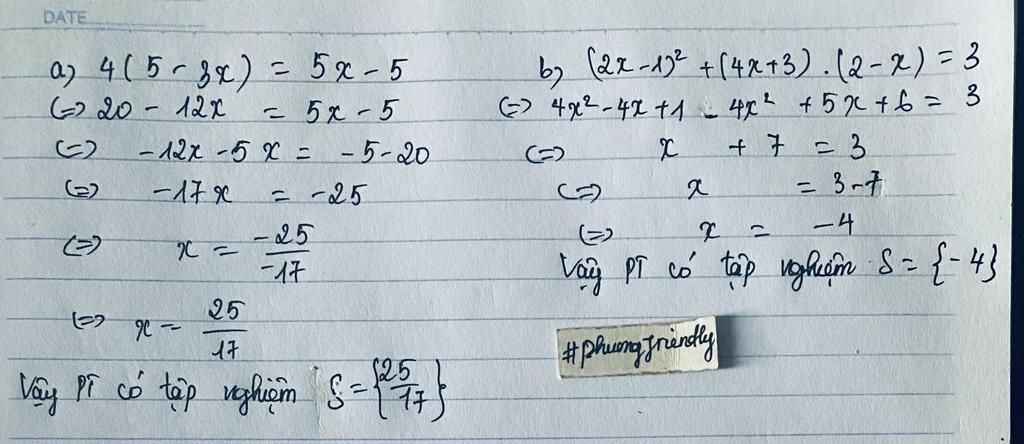 DATE
a) 4(5 - 3x) = 5x - 5
(=) 20 - 12x = 5x - 5
(=) -12x - 5x = -5 - 20
(=) -17x = -25
(=) x = -25/-17
(=) x = 25/17
Vậy PT có tập nghiệm S = {25/17}
b) (2x - 1)² + (4x + 3) . (2 - x) = 3
(=) 4x² - 4x + 1 - 4x² + 5x + 6 = 3
(=) x + 7 = 3
(=) x = 3 - 7
(=) x = -4
Vậy PT có tập nghiệm S = {-4}
#phuongfriendly